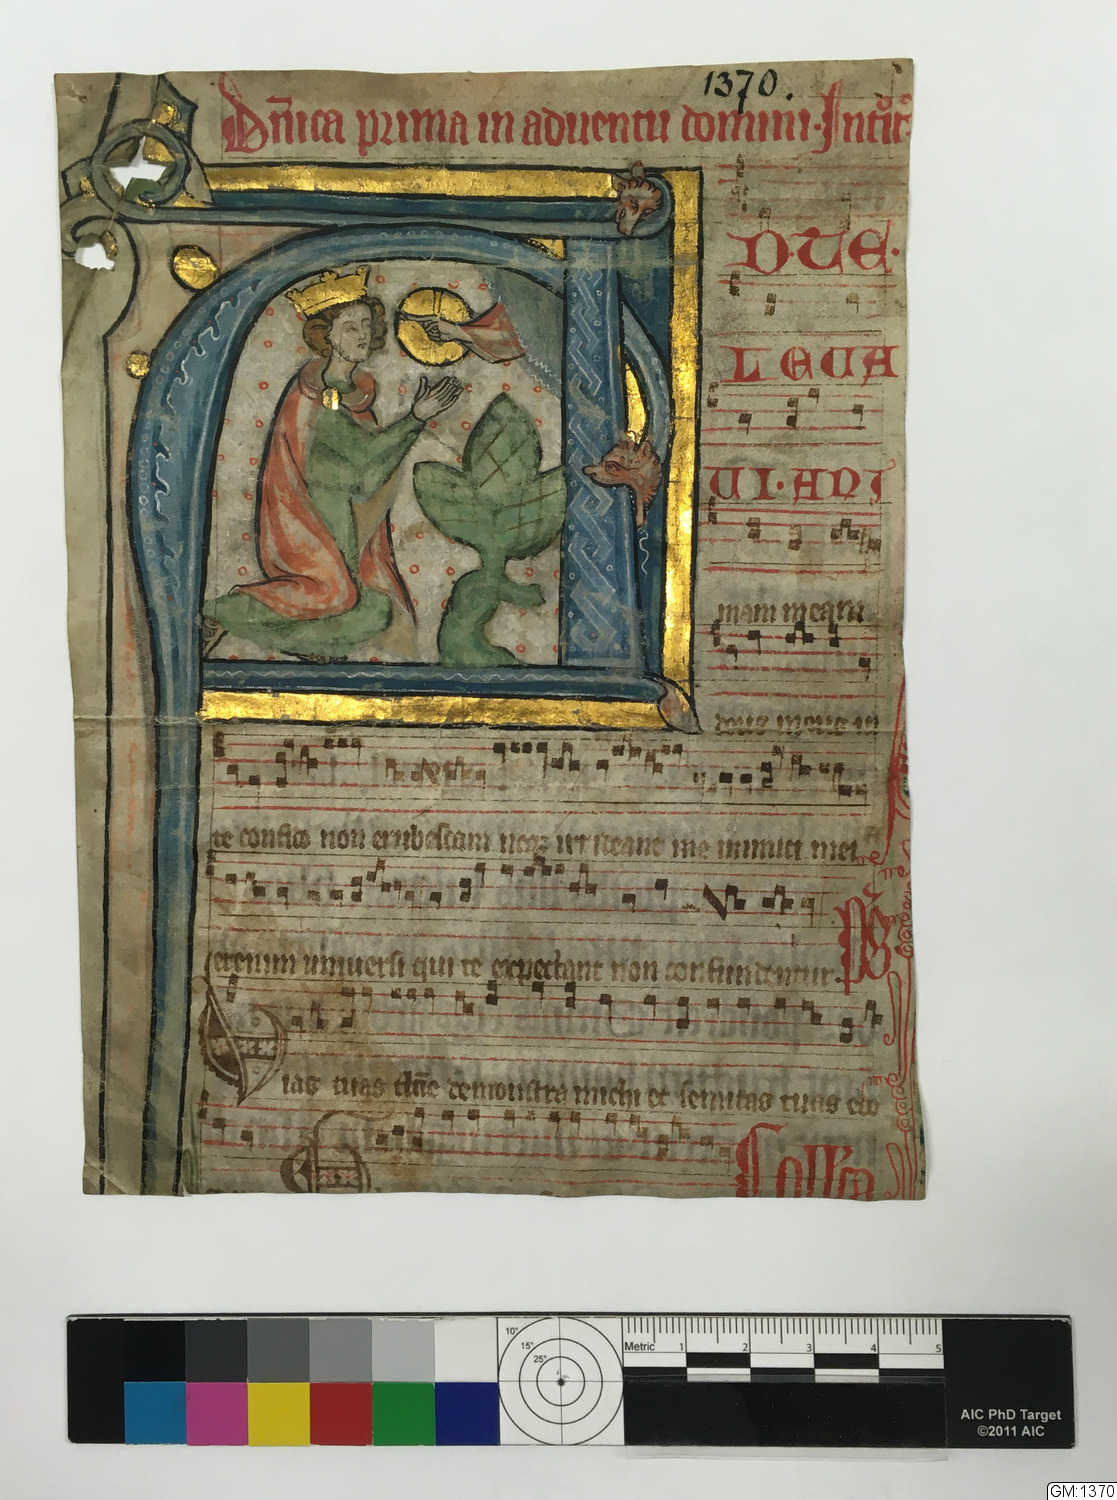 1370.
Dn̄ica prima in aduentu domini. Introitꝰ
D. TE.
LEVA
VI. ANI
mam meam
deus meus in
te confido non erubescam neqꝫ irrideant me inimici mei
etenim uniuersi qui te expectant non confundentur. Ps
Uias tuas dn̄e demonstra michi et semitas tuas edo
Metric 1 2 3 4 5
10°
15°
25°
AIC PhD Target
©2011 AIC
GM:1370